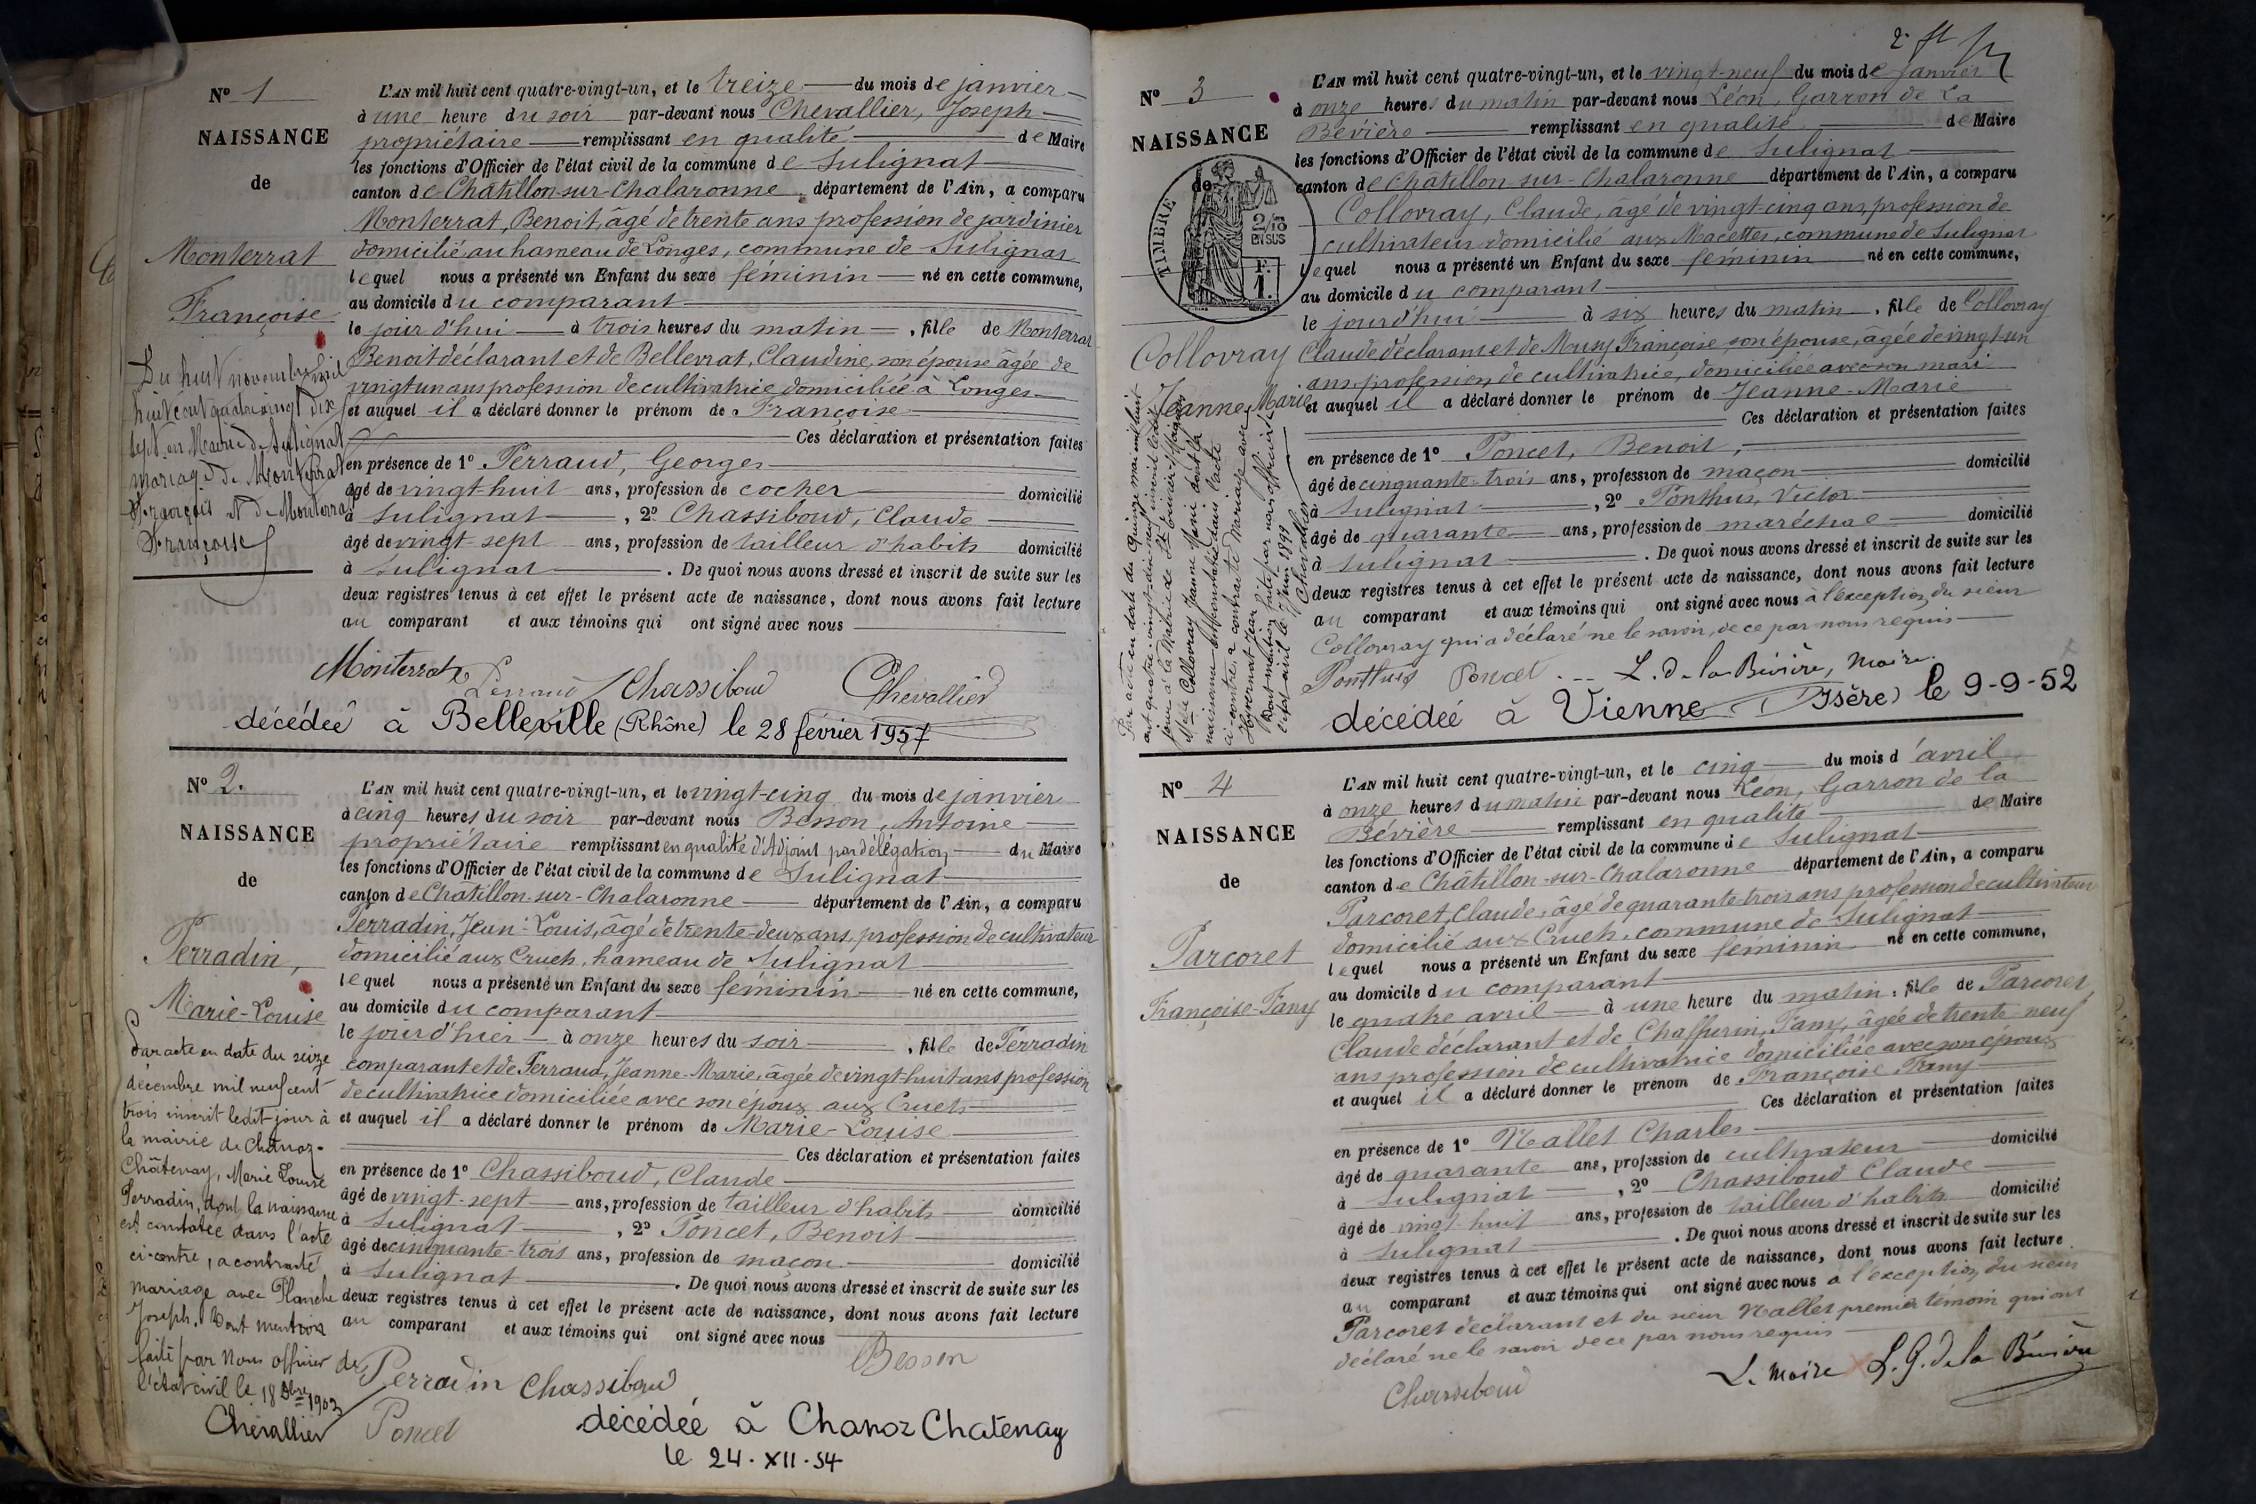 Nº 1
NAISSANCE
de
Monterrat
Françoise
Du huit novembre mil
huit cent quatre vingt dix
sept en Mairie de Sulignat
mariage de Monterrat
François et de Monterrat
Françoise
L'AN mil huit cent quatre-vingt-un, et le treize du mois de janvier
à une heure du soir par-devant nous Chevallier, Joseph
propriétaire remplissant en qualité de Maire
les fonctions d'Officier de l'état civil de la commune de Sulignat
canton de Châtillon-sur-Chalaronne département de l'Ain, a comparu
Monterrat, Benoit, âgé de trente ans profession de jardinier
domicilié au hameau de Longes, commune de Sulignat
lequel nous a présenté un Enfant du sexe féminin né en cette commune,
au domicile du comparant
le jour d'hui à trois heures du matin, fille de Monterrat
Benoit déclarant et de Belleverat, Claudine, son épouse âgée de
vingt un ans profession de cultivatrice domiciliée à Longes
et auquel il a déclaré donner le prénom de Françoise
Ces déclaration et présentation faites
en présence de 1º Perraud, Georges
âgé de vingt-huit ans, profession de cocher domicilié
à Sulignat, 2º Chassiboud, Claude
âgé de vingt-sept ans, profession de tailleur d'habits domicilié
à Sulignat. De quoi nous avons dressé et inscrit de suite sur les
deux registres tenus à cet effet le présent acte de naissance, dont nous avons fait lecture
au comparant et aux témoins qui ont signé avec nous
Monterrat Perraud Chassiboud Chevallier
décédée à Belleville (Rhône) le 28 février 1957
Nº 2.
NAISSANCE
de
Perradin,
Marie-Louise
Par acte en date du seize
décembre mil neuf cent
trois inscrit ledit jour à
la mairie de Chanoz-
Châtenay, Marie Louise
Perradin, dont la naissance
est constatée dans l'acte
ci-contre, a contracté
mariage avec Planche
Joseph. Dont mention
faite par Nous officier de
l'état civil le 18 Xbre 1903
Chevallier
L'AN mil huit cent quatre-vingt-un, et le vingt-cinq du mois de janvier
à cinq heures du soir par-devant nous Besson, Antoine
propriétaire remplissant en qualité d'Adjoint par délégation du Maire
les fonctions d'Officier de l'état civil de la commune de Sulignat
canton de Chatillon-sur-Chalaronne département de l'Ain, a comparu
Perradin, Jean-Louis, âgé de trente-deux ans, profession de cultivateur
domicilié aux Cruets, hameau de Sulignat
lequel nous a présenté un Enfant du sexe féminin né en cette commune,
au domicile du comparant
le jour d'hier à onze heures du soir, fille de Perradin
comparant et de Perraud, Jeanne-Marie, âgée de vingt-huit ans profession
de cultivatrice domiciliée avec son époux aux Cruets
et auquel il a déclaré donner le prénom de Marie-Louise
Ces déclaration et présentation faites
en présence de 1º Chassiboud, Claude
âgé de vingt-sept ans, profession de tailleur d'habits domicilié
à Sulignat, 2º Poncet, Benoit
âgé de cinquante-trois ans, profession de maçon domicilié
à Sulignat. De quoi nous avons dressé et inscrit de suite sur les
deux registres tenus à cet effet le présent acte de naissance, dont nous avons fait lecture
au comparant et aux témoins qui ont signé avec nous
Perradin Chassiboud Besson
Poncet
décédée à Chanoz Chatenay
le 24.XII.54
2e ft
Nº 3
NAISSANCE
de
TIMBRE
2/10
EN SUS
F.
1.
Collovray
Jeanne Marie
Par acte en date du quinze mai mil huit
cent quatre-vingt-dix-neuf inscrit ledit
jour à la Mairie de
Melle Collovray Jeanne Marie dont la
naissance est constatée dans l'acte
ci-contre, a contracté Mariage avec
Jean
Dont mention faite par nous officier de
l'état civil le juin 1899
Chevallier
L'AN mil huit cent quatre-vingt-un, et le vingt-neuf du mois de janvier
à onze heures du matin par-devant nous Léon, Garron de La
Bévière remplissant en qualité de Maire
les fonctions d'Officier de l'état civil de la commune de Sulignat
canton de Châtillon-sur-Chalaronne département de l'Ain, a comparu
Collovray, Claude, âgé de vingt-cinq ans, profession de
cultivateur domicilié aux Macettes, commune de Sulignat
lequel nous a présenté un Enfant du sexe féminin né en cette commune,
au domicile du comparant
le jourd'hui à six heures du matin, fille de Collovray
Claude déclarant et de Françoise son épouse, âgée de vingt-un
ans profession de cultivatrice, domiciliée avec son mari
et auquel il a déclaré donner le prénom de Jeanne-Marie
Ces déclaration et présentation faites
en présence de 1º Poncet, Benoit,
âgé de cinquante-trois ans, profession de maçon domicilié
à Sulignat, 2º Ponthus, Victor
âgé de quarante ans, profession de maréchal domicilié
à Sulignat. De quoi nous avons dressé et inscrit de suite sur les
deux registres tenus à cet effet le présent acte de naissance, dont nous avons fait lecture
au comparant et aux témoins qui ont signé avec nous à l'exception du sieur
Collovray qui a déclaré ne le savoir, de ce par nous requis
Ponthus Poncet L. G. de la Bévière, Maire.
décédée à Vienne (Isère) le 9-9-52
Nº 4
NAISSANCE
de
Parcoret
Françoise-Fany
L'AN mil huit cent quatre-vingt-un, et le cinq du mois d'avril
à onze heures du matin par-devant nous Léon, Garron de la
Bévière remplissant en qualité de Maire
les fonctions d'Officier de l'état civil de la commune de Sulignat
canton de Châtillon-sur-Chalaronne département de l'Ain, a comparu
Parcoret, Claude, âgé de quarante-trois ans profession de cultivateur
domicilié aux Cruets, commune de Sulignat
lequel nous a présenté un Enfant du sexe féminin né en cette commune,
au domicile du comparant
le quatre avril à une heure du matin, fille de Parcoret
Claude déclarant et de Chaffurin, Fany, âgée de trente-neuf
ans profession de cultivatrice domiciliée avec son époux
et auquel il a déclaré donner le prénom de Françoise Fany
Ces déclaration et présentation faites
en présence de 1º Nallet Charles
âgé de quarante ans, profession de cultivateur domicilié
à Sulignat, 2º Chassiboud Claude
âgé de vingt-huit ans, profession de tailleur d'habits domicilié
à Sulignat. De quoi nous avons dressé et inscrit de suite sur les
deux registres tenus à cet effet le présent acte de naissance, dont nous avons fait lecture
au comparant et aux témoins qui ont signé avec nous à l'exception du sieur
Parcoret déclarant et du sieur Nallet premier témoin qui ont
déclaré ne le savoir de ce par nous requis
Chassiboud
L. Maire L. G. de la Bévière